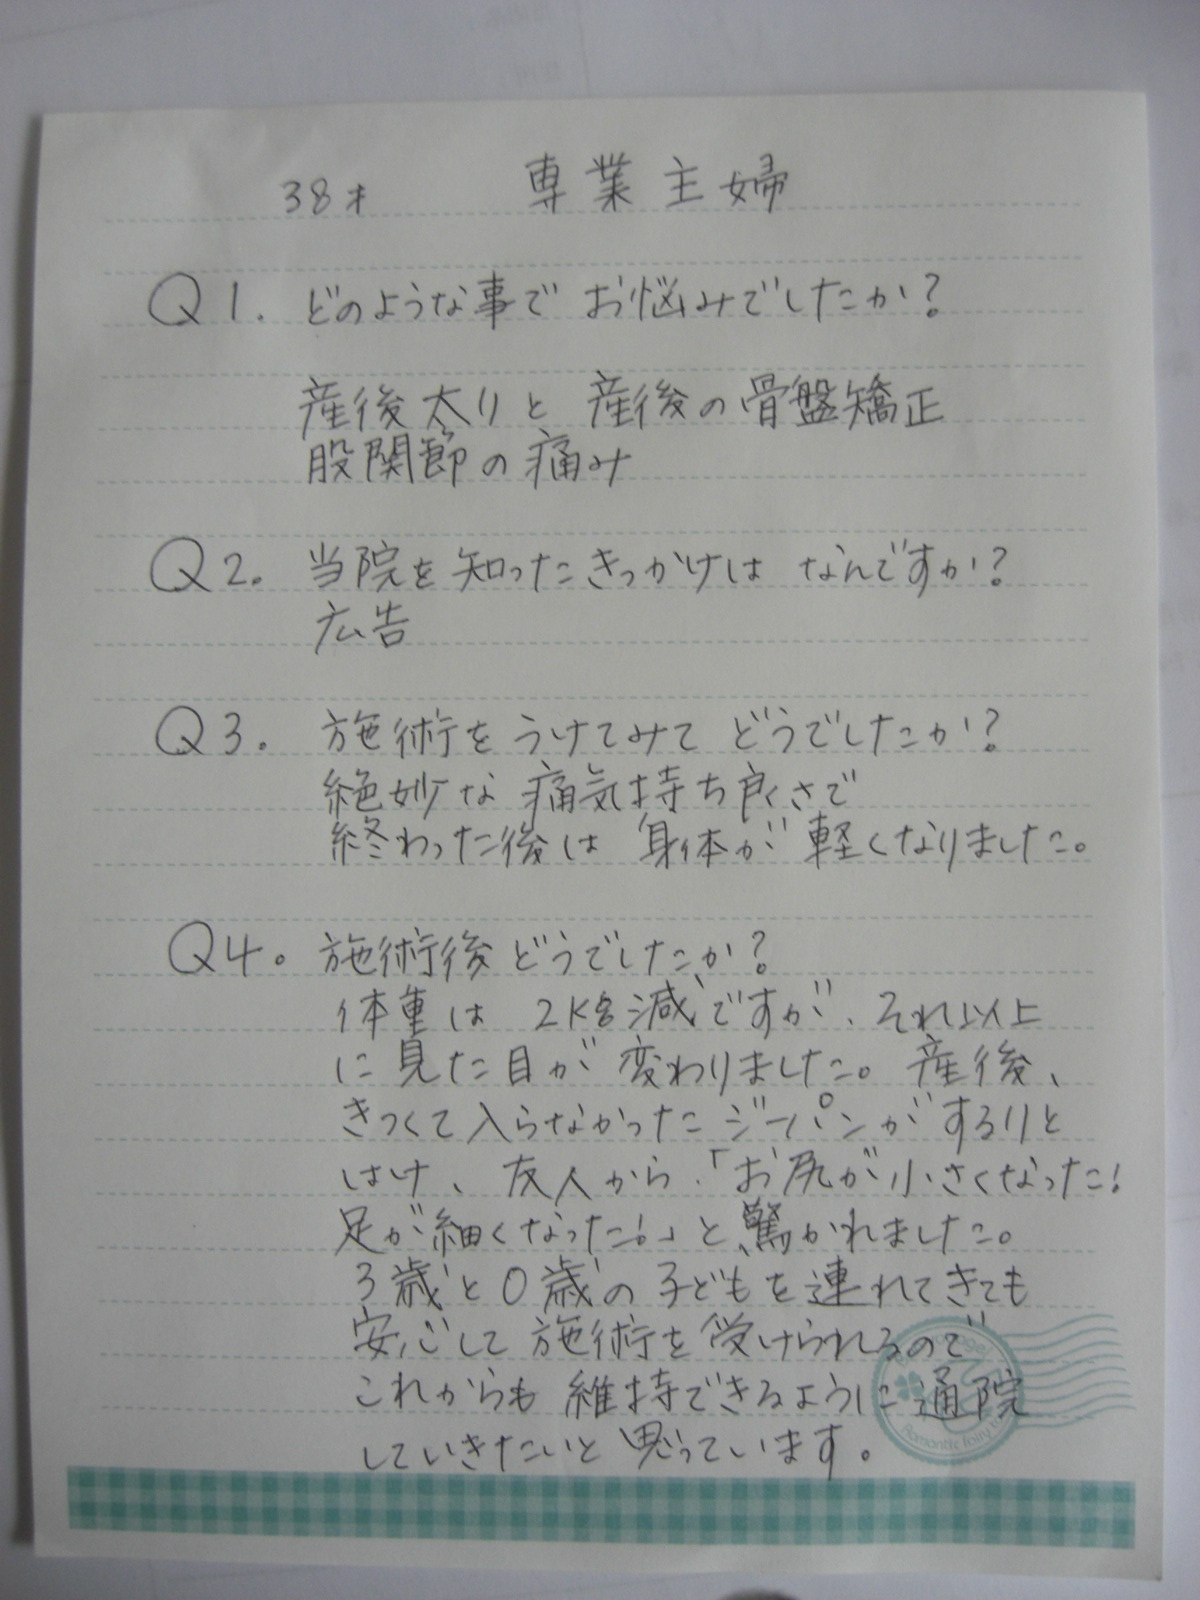 38才 専業主婦
Q1. どのような事で お悩みでしたか?
産後太りと 産後の骨盤矯正
股関節の痛み
Q2. 当院を知ったきっかけは なんですか?
広告
Q3. 施術をうけてみて どうでしたか?
絶妙な痛気持ち良さで
終わった後は 身体が軽くなりました。
Q4. 施術後どうでしたか?
体重は 2kg減ですが、それ以上
に見た目が変わりました。産後、
きつくて入らなかったジーパンがするりと
はけ、友人から、「お尻が小さくなった!
足が細くなった!」と驚かれました。
3歳と0歳の子どもを連れてきても
安心して施術を受けられるので
これからも維持できるように通院
していきたいと思っています。
Romantic fairy